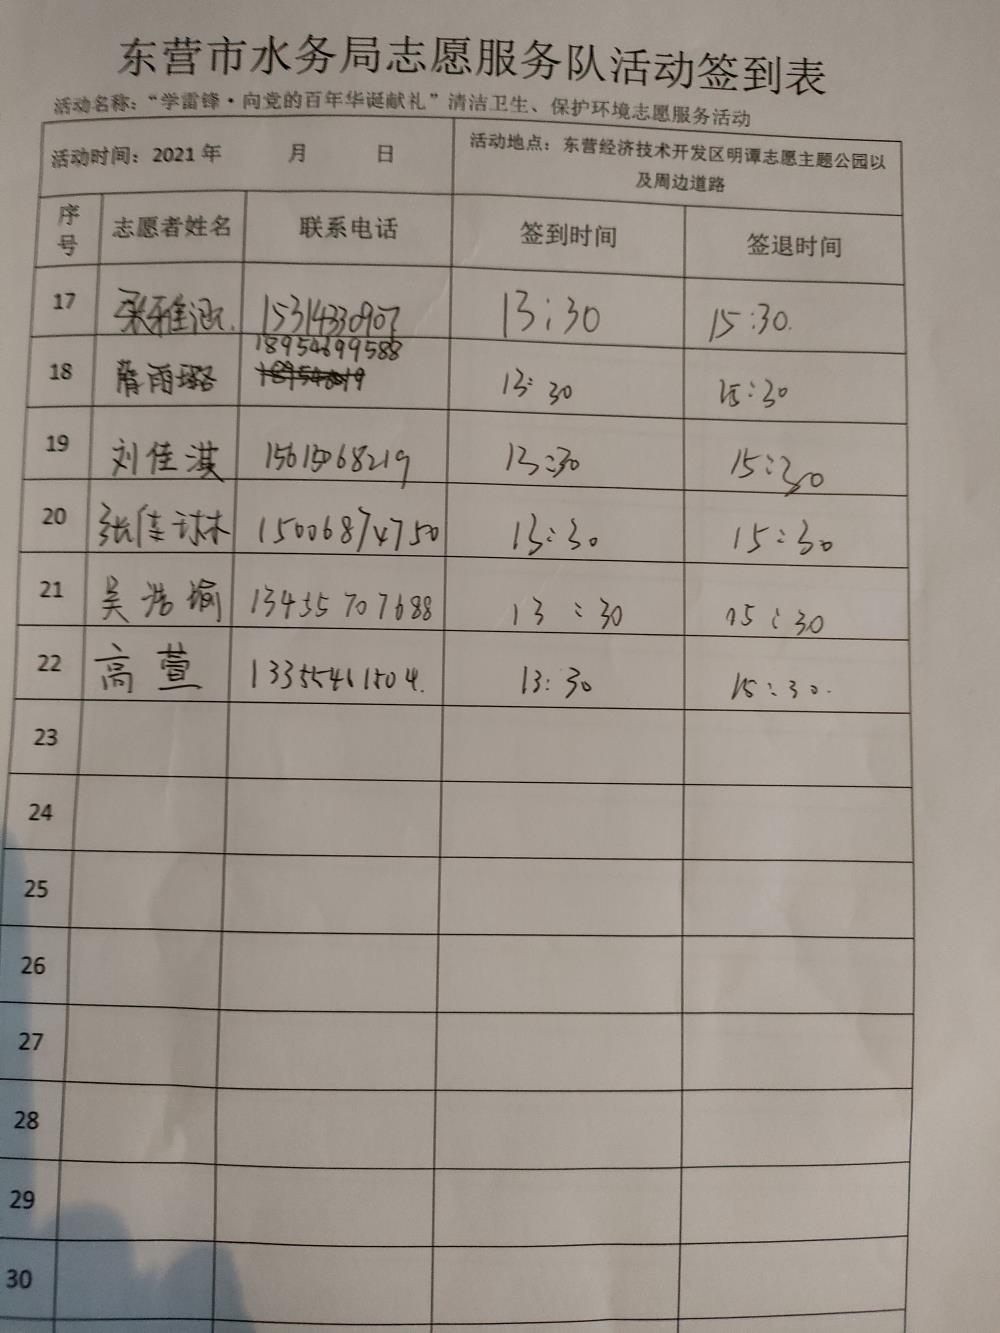 东营市水务局志愿服务队活动签到表
活动名称：“学雷锋·向党的百年华诞献礼”清洁卫生、保护环境志愿服务活动
活动时间：2021年 月 日
活动地点：东营经济技术开发区明谭志愿主题公园以
及周边道路
序号 志愿者姓名 联系电话 签到时间 签退时间
17 15314330907 13:30 15:30.
18 雨璐 18954699588 13:30 15:30
19 刘佳淇 15615068219 13:30 15:30
20 张佳琳 15006874750 13:30 15:30
21 吴浩瑜 13455707688 13:30 15:30
22 高萱 13355461504. 13:30 15:30.
23
24
25
26
27
28
29
30